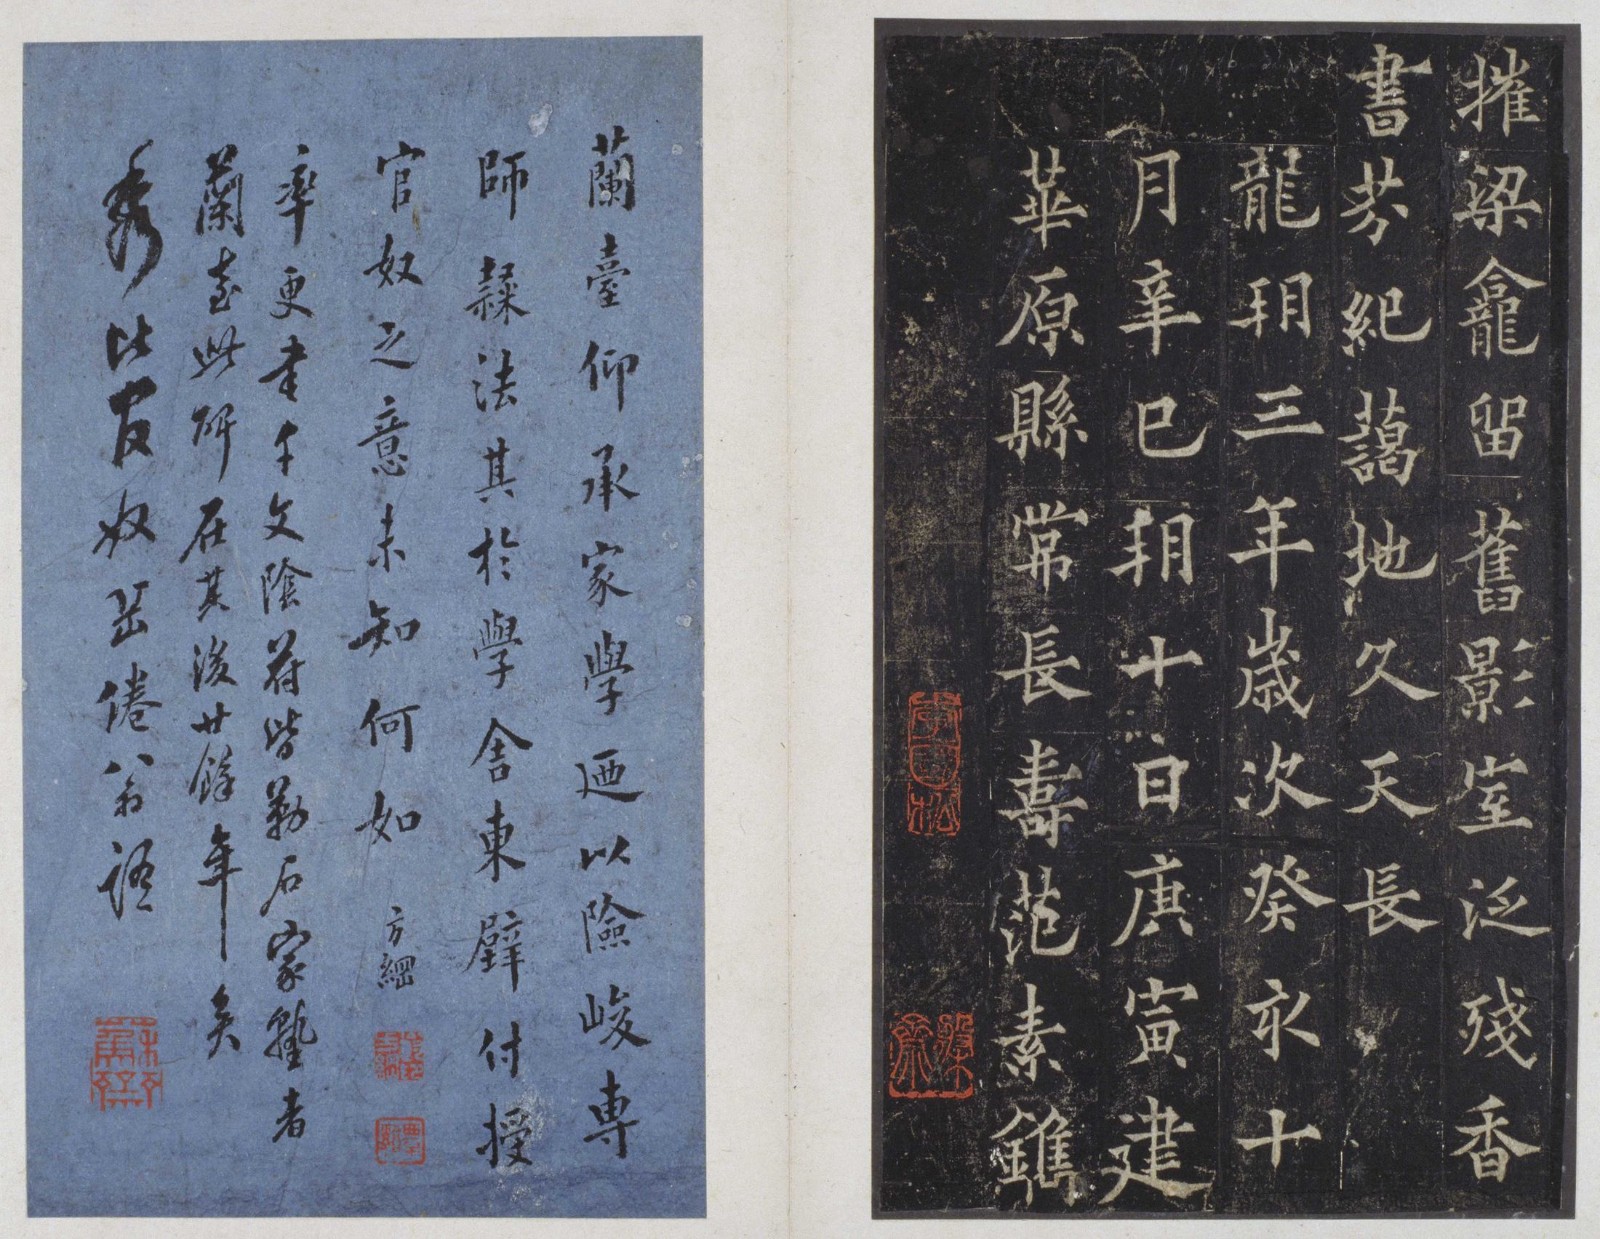 摧梁龕留舊影室泛殘香
書芬紀藹地久天長
龍朔三年歲次癸亥十
月辛巳朔十日庚寅建
華原縣常長壽范素鐫
蘭臺仰承家學迺以險峻專
師隸法其於學舍東壁付授
官奴之意未知何如 方綱
率更書千文陰符皆勒石家塾者
蘭臺此碑在其後廿餘年矣
比官奴 倦翁語